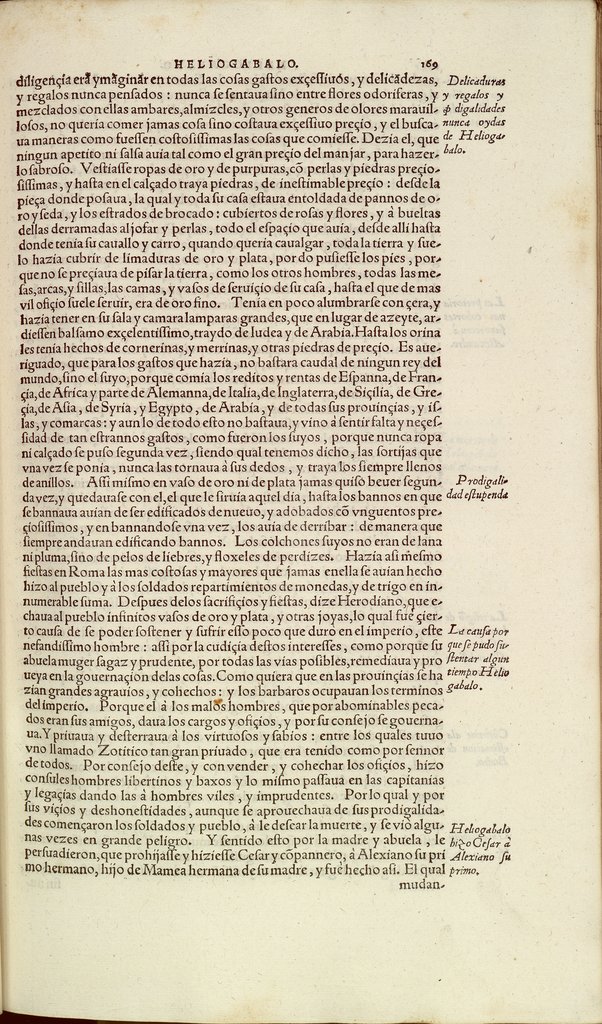 HELIOGABALO. 169
diligençia era ymaginar en todas las cosas gastos exçessiuos, y delicadezas,
y regalos nunca pensados : nunca se sentaua sino entre flores odoriferas, y
mezclados con ellas ambares, almizcles, y otros generos de olores marauil-
losos, no quería comer jamas cosa sino costaua exçessiuo preçio, y el busca-
ua maneras como fuessen costosissimas las cosas que comiesse. Dezía el, que
ningun apetito ni salsa auia tal como el gran preçio del manjar, para hazer-
lo sabroso. Vestiasse ropas de oro y de purpuras, cõ perlas y piedras preçio-
sissimas, y hasta en el calçado traya piedras, de inestimable preçio : desde la
pieça donde posaua, la qual y toda su casa estaua entoldada de pannos de o-
ro y seda, y los estrados de brocado : cubiertos de rosas y flores, y à bueltas
dellas derramadas aljofar y perlas, todo el espaçio que auía, desde alli hasta
donde tenía su cauallo y carro, quando quería caualgar, toda la tierra y sue-
lo hazía cubrir de limaduras de oro y plata, por do pusiesse los pies, por-
que no se preçiaua de pisar la tierra, como los otros hombres, todas las me-
sas, arcas, y sillas, las camas, y vasos de seruiçio de su casa, hasta el que de mas
vil ofiçio suele seruir, era de oro fino. Tenía en poco alumbrarse con çera, y
hazía tener en su sala y camara lamparas grandes, que en lugar de azeyte, ar-
diessen balsamo exçelentissimo, traydo de Iudea y de Arabia. Hasta los orina
les tenía hechos de cornerinas, y merrinas, y otras piedras de preçio. Es aue-
riguado, que para los gastos que hazía, no bastara caudal de ningun rey del
mundo, sino el suyo, porque comía los reditos y rentas de Espanna, de Fran-
çia, de Africa y parte de Alemanna, de Italia, de Inglaterra, de Siçilia, de Gre-
çia, de Asia, de Syria, y Egypto, de Arabia, y de todas sus prouinçias, y is-
las, y comarcas : y aun lo de todo esto no bastaua, y vino à sentir falta y neçes-
sidad de tan estrannos gastos, como fueron los suyos, porque nunca ropa
ni calçado se puso segunda vez, siendo qual tenemos dicho, las sortijas que
vna vez se ponía, nunca las tornaua à sus dedos, y traya los siempre llenos
de anillos. Assi mismo en vaso de oro ni de plata jamas quiso beuer segun-
da vez, y quedauase con el, el que le siruia aquel día, hasta los bannos en que
se bannaua auían de ser edificados de nueuo, y adobados cõ vnguentos pre-
çiosissimos, y en bannandose vna vez, los auia de derribar : de manera que
siempre andauan edificando bannos. Los colchones suyos no eran de lana
ni pluma, sino de pelos de liebres, y floxeles de perdizes. Hazía asi mesmo
fiestas en Roma las mas costosas y mayores que jamas enella se auían hecho
hizo al pueblo y à los soldados repartimientos de monedas, y de trigo en in-
numerable suma. Despues delos sacrifiçios y fiestas, dize Herodiano, que e-
chaua al pueblo infinitos vasos de oro y plata, y otras joyas, lo qual fué çier-
to causa de se poder sostener y sufrir esso poco que duró en el imperio, este
nefandissimo hombre : assi por la cudiçia destos interesses, como porque su
abuela muger sagaz y prudente, por todas las vías posibles, remediaua y pro
ueya en la gouernaçion delas cosas. Como quiera que en las prouinçias se ha
zían grandes agrauios, y cohechos : y los barbaros ocupauan los terminos
del imperio. Porque el à los malos hombres, que por abominables peca-
dos eran sus amigos, daua los cargos y ofiçios, y por su consejo se gouerna-
ua. Y priuaua y desterraua à los virtuosos y sabios : entre los quales tuuo
vno llamado Zotitico tan gran priuado, que era tenido como por sennor
de todos. Por consejo deste, y con vender, y cohechar los ofiçios, hizo
consules hombres libertinos y baxos y lo mismo passaua en las capitanias
y legaçias dando las à hombres viles, y imprudentes. Por lo qual y por
sus viçios y deshonestidades, aunque se aprouechaua de sus prodigalida-
des començaron los soldados y pueblo, à le desear la muerte, y se vió algu-
nas vezes en grande peligro. Y sentido esto por la madre y abuela, le
persuadieron, que prohijasse y hiziesse Cesar y cõpannero, à Alexiano su pri
mo hermano, hijo de Mamea hermana de su madre, y fué hecho asi. El qual
mudan-
Delicaduras
y regalos y
prodigalidades
nunca oydas
de Helioga-
balo.
Prodigali-
dad estupenda
La causa por
que se pudo su-
stentar algun
tiempo Helio
gabalo.
Heliogabalo
hizo Cesar à
Alexiano su
primo.